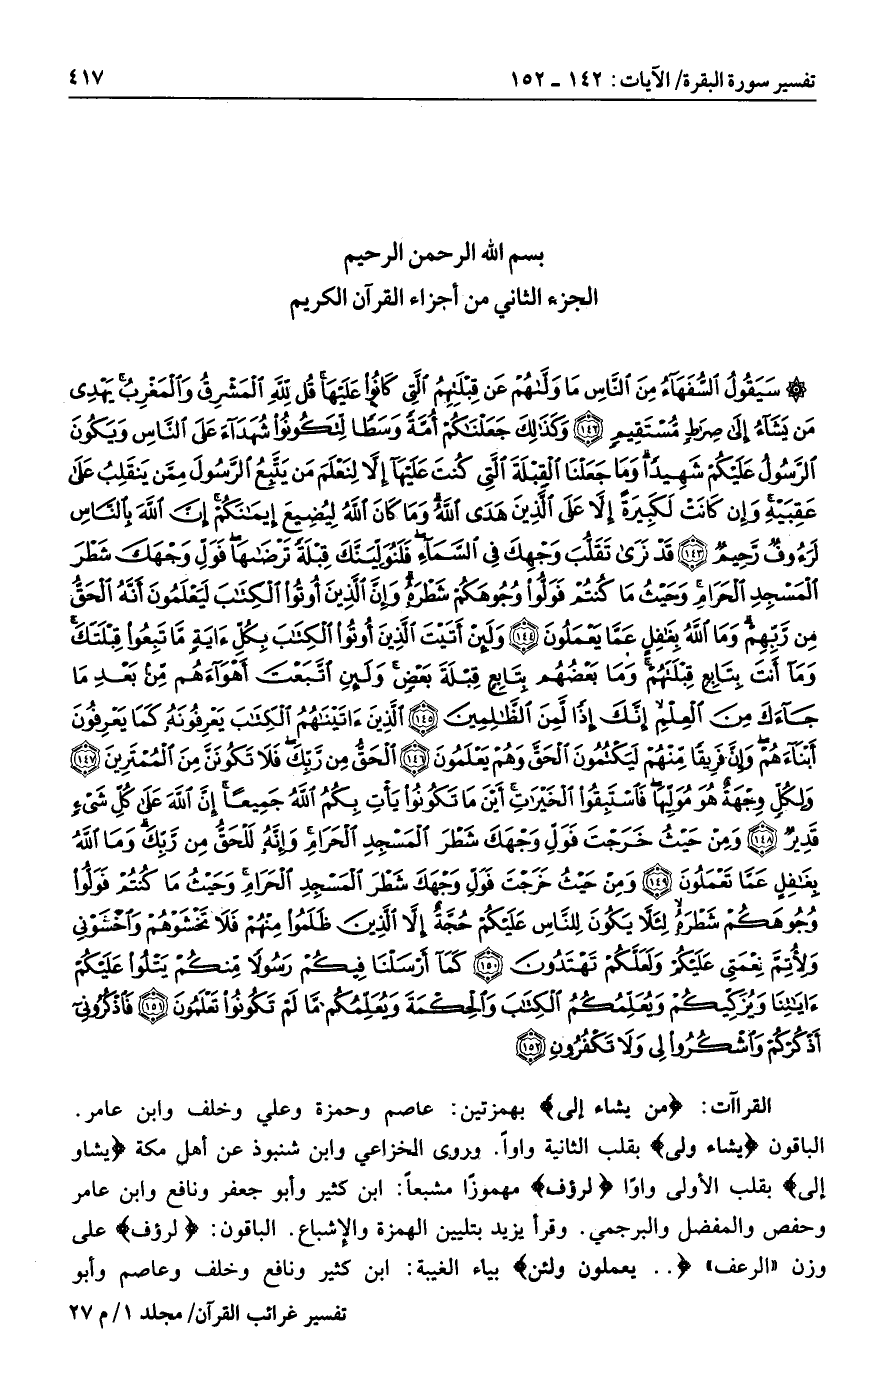 تفسير سورة البقرة/ الآيات: ١٤٢ ـ ١٥٢
٤١٧
بسم الله الرحمن الرحيم
الجزء الثاني من أجزاء القرآن الكريم
۞ سَيَقُولُ السُّفَهَاءُ مِنَ النَّاسِ مَا وَلَّىٰهُمْ عَن قِبْلَتِهِمُ الَّتِي كَانُوا عَلَيْهَا ۚ قُل لِّلَّهِ الْمَشْرِقُ وَالْمَغْرِبُ ۚ يَهْدِي
مَن يَشَاءُ إِلَىٰ صِرَاطٍ مُّسْتَقِيمٍ ﴿١٤٢﴾ وَكَذَٰلِكَ جَعَلْنَاكُمْ أُمَّةً وَسَطًا لِّتَكُونُوا شُهَدَاءَ عَلَى النَّاسِ وَيَكُونَ
الرَّسُولُ عَلَيْكُمْ شَهِيدًا ۗ وَمَا جَعَلْنَا الْقِبْلَةَ الَّتِي كُنتَ عَلَيْهَا إِلَّا لِنَعْلَمَ مَن يَتَّبِعُ الرَّسُولَ مِمَّن يَنقَلِبُ عَلَىٰ
عَقِبَيْهِ ۚ وَإِن كَانَتْ لَكَبِيرَةً إِلَّا عَلَى الَّذِينَ هَدَى اللَّهُ ۗ وَمَا كَانَ اللَّهُ لِيُضِيعَ إِيمَانَكُمْ ۚ إِنَّ اللَّهَ بِالنَّاسِ
لَرَءُوفٌ رَّحِيمٌ ﴿١٤٣﴾ قَدْ نَرَىٰ تَقَلُّبَ وَجْهِكَ فِي السَّمَاءِ ۖ فَلَنُوَلِّيَنَّكَ قِبْلَةً تَرْضَاهَا ۚ فَوَلِّ وَجْهَكَ شَطْرَ
الْمَسْجِدِ الْحَرَامِ ۚ وَحَيْثُ مَا كُنتُمْ فَوَلُّوا وُجُوهَكُمْ شَطْرَهُ ۗ وَإِنَّ الَّذِينَ أُوتُوا الْكِتَابَ لَيَعْلَمُونَ أَنَّهُ الْحَقُّ
مِن رَّبِّهِمْ ۗ وَمَا اللَّهُ بِغَافِلٍ عَمَّا يَعْمَلُونَ ﴿١٤٤﴾ وَلَئِنْ أَتَيْتَ الَّذِينَ أُوتُوا الْكِتَابَ بِكُلِّ آيَةٍ مَّا تَبِعُوا قِبْلَتَكَ ۚ
وَمَا أَنتَ بِتَابِعٍ قِبْلَتَهُمْ ۚ وَمَا بَعْضُهُم بِتَابِعٍ قِبْلَةَ بَعْضٍ ۚ وَلَئِنِ اتَّبَعْتَ أَهْوَاءَهُم مِّن بَعْدِ مَا
جَاءَكَ مِنَ الْعِلْمِ ۙ إِنَّكَ إِذًا لَّمِنَ الظَّالِمِينَ ﴿١٤٥﴾ الَّذِينَ آتَيْنَاهُمُ الْكِتَابَ يَعْرِفُونَهُ كَمَا يَعْرِفُونَ
أَبْنَاءَهُمْ ۖ وَإِنَّ فَرِيقًا مِّنْهُمْ لَيَكْتُمُونَ الْحَقَّ وَهُمْ يَعْلَمُونَ ﴿١٤٦﴾ الْحَقُّ مِن رَّبِّكَ ۖ فَلَا تَكُونَنَّ مِنَ الْمُمْتَرِينَ ﴿١٤٧﴾
وَلِكُلٍّ وِجْهَةٌ هُوَ مُوَلِّيهَا ۖ فَاسْتَبِقُوا الْخَيْرَاتِ ۚ أَيْنَ مَا تَكُونُوا يَأْتِ بِكُمُ اللَّهُ جَمِيعًا ۚ إِنَّ اللَّهَ عَلَىٰ كُلِّ شَيْءٍ
قَدِيرٌ ﴿١٤٨﴾ وَمِنْ حَيْثُ خَرَجْتَ فَوَلِّ وَجْهَكَ شَطْرَ الْمَسْجِدِ الْحَرَامِ ۖ وَإِنَّهُ لَلْحَقُّ مِن رَّبِّكَ ۗ وَمَا اللَّهُ
بِغَافِلٍ عَمَّا تَعْمَلُونَ ﴿١٤٩﴾ وَمِنْ حَيْثُ خَرَجْتَ فَوَلِّ وَجْهَكَ شَطْرَ الْمَسْجِدِ الْحَرَامِ ۚ وَحَيْثُ مَا كُنتُمْ فَوَلُّوا
وُجُوهَكُمْ شَطْرَهُ لِئَلَّا يَكُونَ لِلنَّاسِ عَلَيْكُمْ حُجَّةٌ إِلَّا الَّذِينَ ظَلَمُوا مِنْهُمْ فَلَا تَخْشَوْهُمْ وَاخْشَوْنِي
وَلِأُتِمَّ نِعْمَتِي عَلَيْكُمْ وَلَعَلَّكُمْ تَهْتَدُونَ ﴿١٥٠﴾ كَمَا أَرْسَلْنَا فِيكُمْ رَسُولًا مِّنكُمْ يَتْلُوا عَلَيْكُمْ
آيَاتِنَا وَيُزَكِّيكُمْ وَيُعَلِّمُكُمُ الْكِتَابَ وَالْحِكْمَةَ وَيُعَلِّمُكُم مَّا لَمْ تَكُونُوا تَعْلَمُونَ ﴿١٥١﴾ فَاذْكُرُونِي
أَذْكُرْكُمْ وَاشْكُرُوا لِي وَلَا تَكْفُرُونِ ﴿١٥٢﴾
القراآت: ﴿من يشاء إلى﴾ بهمزتين: عاصم وحمزة وعلي وخلف وابن عامر.
الباقون ﴿يشاء ولى﴾ بقلب الثانية واواً. وروى الخزاعي وابن شنبوذ عن أهل مكة ﴿يشاو
إلى﴾ بقلب الأولى واوًا ﴿لرؤف﴾ مهموزًا مشبعاً: ابن كثير وأبو جعفر ونافع وابن عامر
وحفص والمفضل والبرجمي. وقرأ يزيد بتليين الهمزة والإشباع. الباقون: ﴿لرؤف﴾ على
وزن «الرعف» ﴿.. يعملون ولئن﴾ بياء الغيبة: ابن كثير ونافع وخلف وعاصم وأبو
تفسير غرائب القرآن/ مجلد ١/ م ٢٧